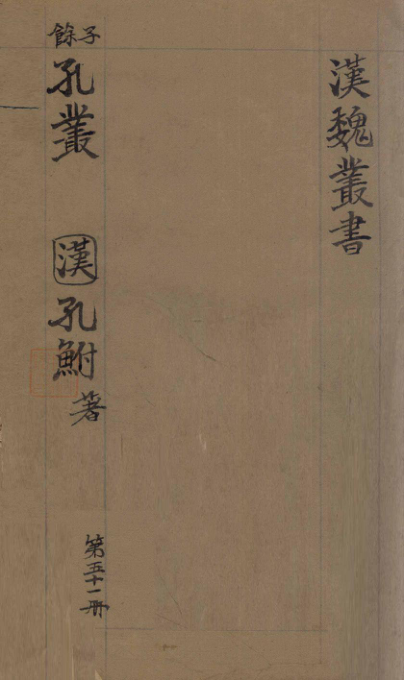 漢魏叢書
子餘
孔叢
漢 孔鮒著
第五十一冊